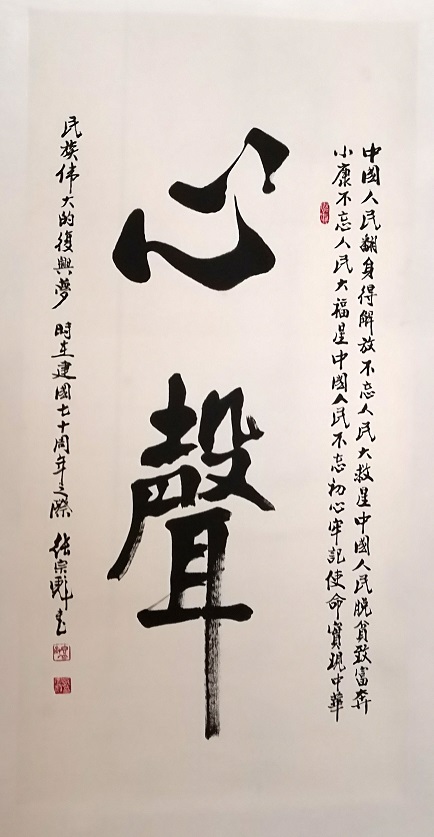 中國人民翻身得解放不忘人民大救星中國人民脫貧致富奔
小康不忘人民大福星中國人民不忘初心牢記使命實現中華
心聲
民族偉大的復興夢 時在建國七十周年之際 張宗彪書